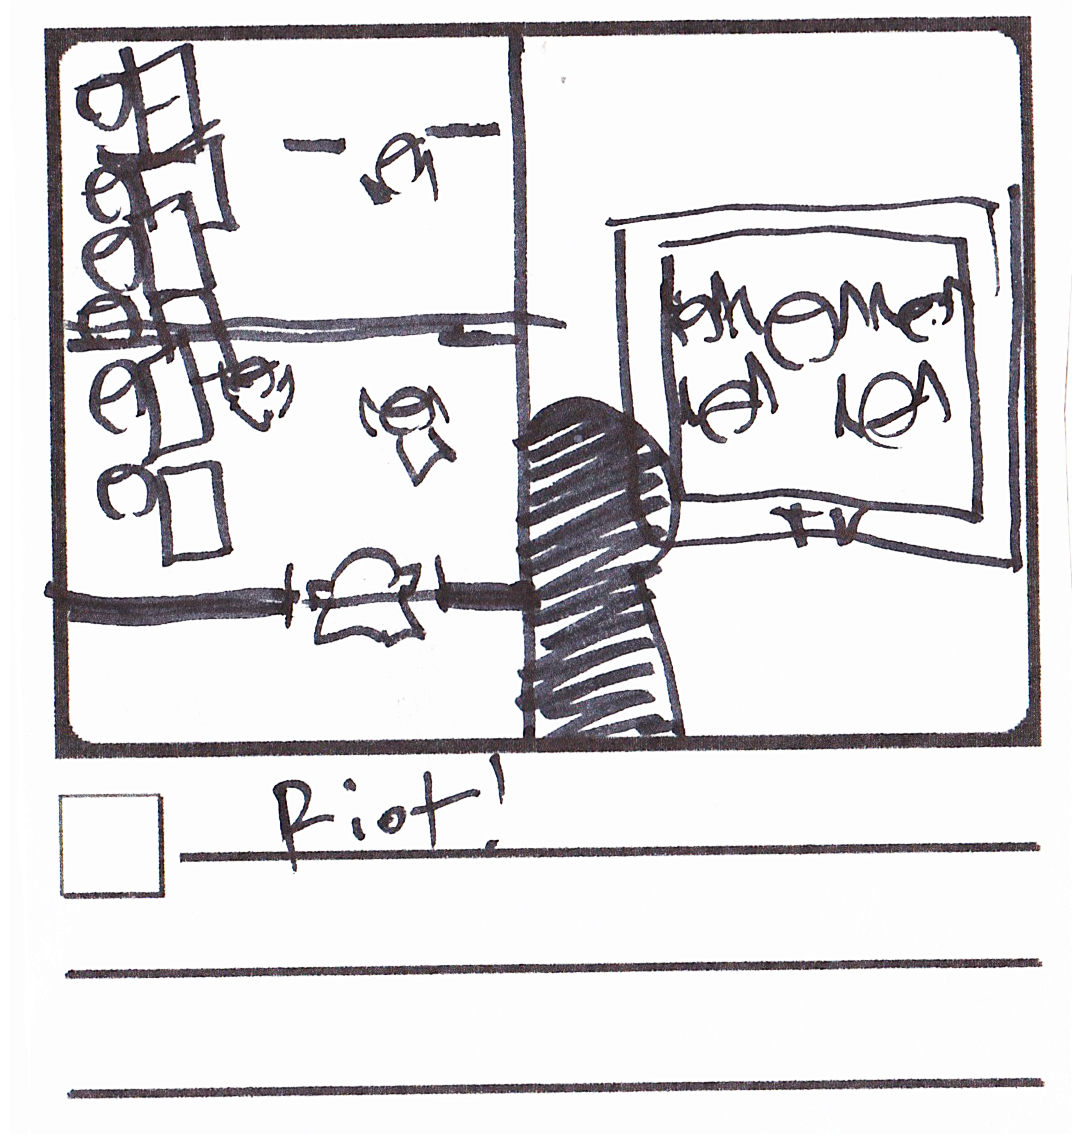 TV
Riot!